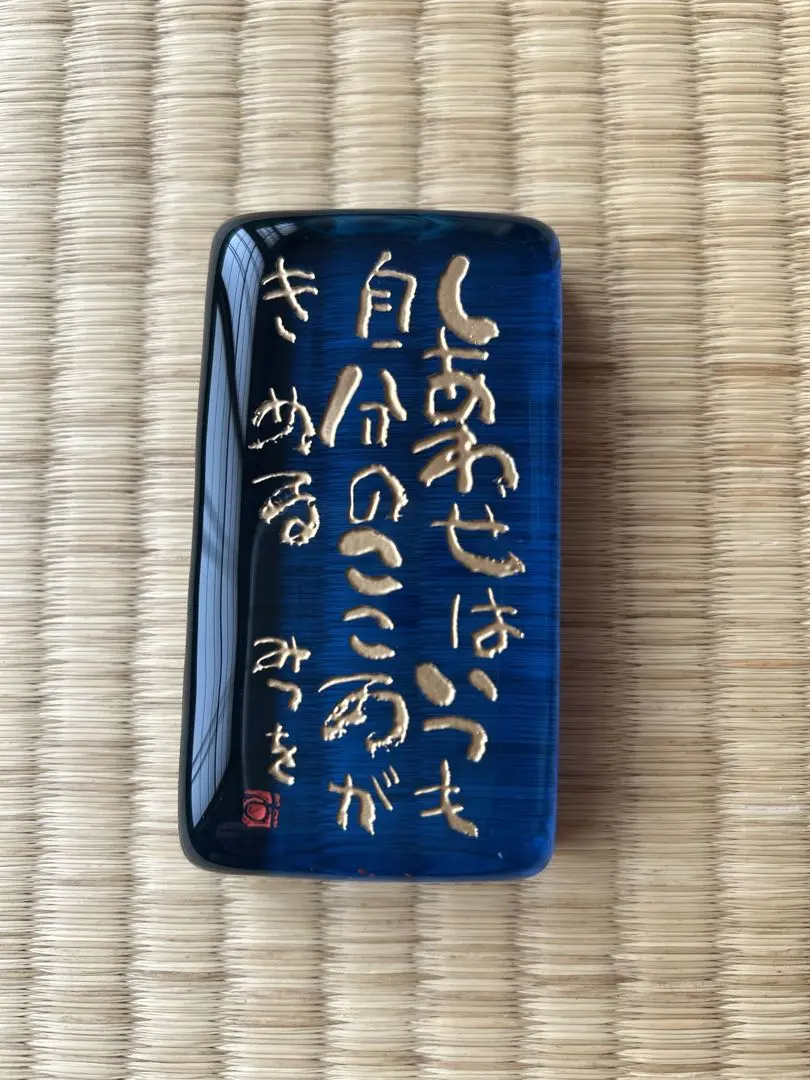 しあわせはいつも
自分のこころが
きめる
みつを